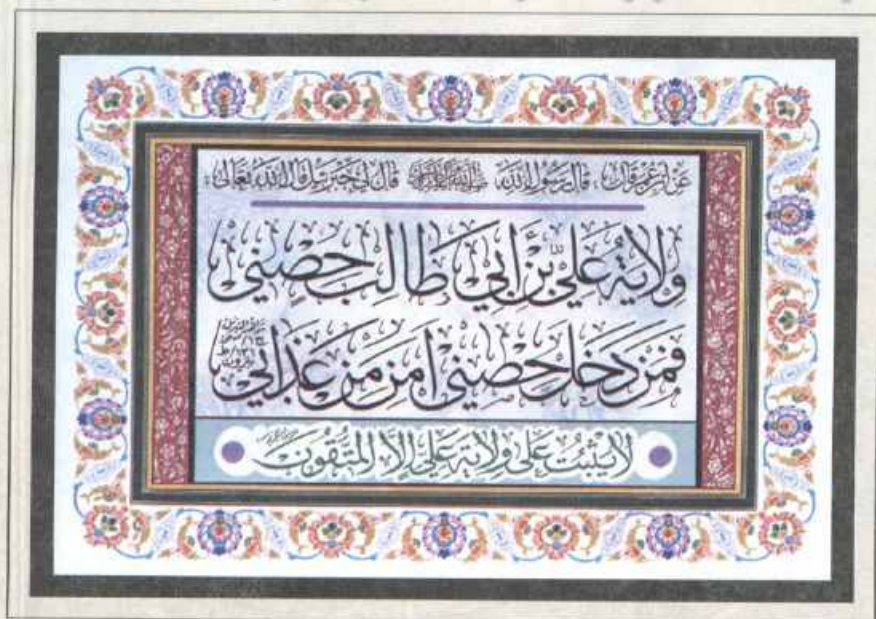 عَن ابن عُمر قَالَ، قَالَ رَسُولُ اللهِ ﷺ قَالَ لِي جبرئيل قالَ اللهُ تَعَالَى:
وِلايَةُ عَليِّ بْنِ أَبِي طَالِب حِصْنِي
فَمَنْ دَخَلَ حِصْنِي أَمِنَ مِنْ عَذَابِي
لَا يَثْبُتُ عَلَى وِلايَةِ عَلِيٍّ إِلاَّ المُتَّقُونَ